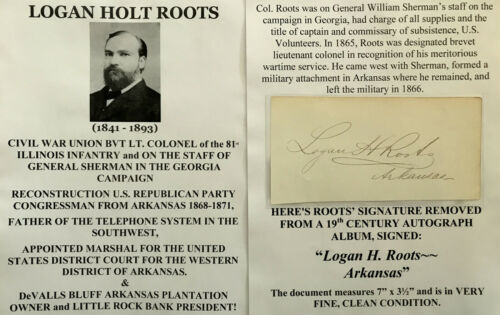 LOGAN HOLT ROOTS
(1841 - 1893)
CIVIL WAR UNION BVT LT. COLONEL of the 81st
ILLINOIS INFANTRY and ON THE STAFF OF
GENERAL SHERMAN IN THE GEORGIA
CAMPAIGN
RECONSTRUCTION U.S. REPUBLICAN PARTY
CONGRESSMAN FROM ARKANSAS 1868-1871,
FATHER OF THE TELEPHONE SYSTEM IN THE
SOUTHWEST,
APPOINTED MARSHAL FOR THE UNITED
STATES DISTRICT COURT FOR THE WESTERN
DISTRICT OF ARKANSAS.
&
DeVALLS BLUFF ARKANSAS PLANTATION
OWNER and LITTLE ROCK BANK PRESIDENT!
Col. Roots was on General William Sherman's staff on the
campaign in Georgia, had charge of all supplies and the
title of captain and commissary of subsistence, U.S.
Volunteers. In 1865, Roots was designated brevet
lieutenant colonel in recognition of his meritorious
wartime service. He came west with Sherman, formed a
military attachment in Arkansas where he remained, and
left the military in 1866.
Logan H Roots
Arkansas
HERE'S ROOTS' SIGNATURE REMOVED
FROM A 19th CENTURY AUTOGRAPH
ALBUM, SIGNED:
"Logan H. Roots~~
Arkansas"
The document measures 7" x 3½" and is in VERY
FINE, CLEAN CONDITION.